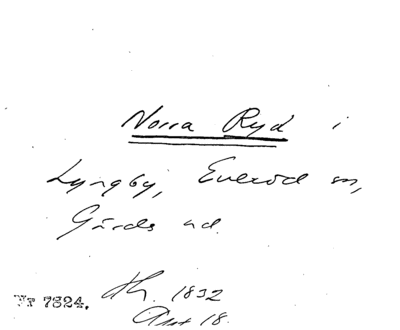 Norra Ryd i
Lyngby, Everöd sn,
Gärds hd.
Nr 7824. 1832
18.